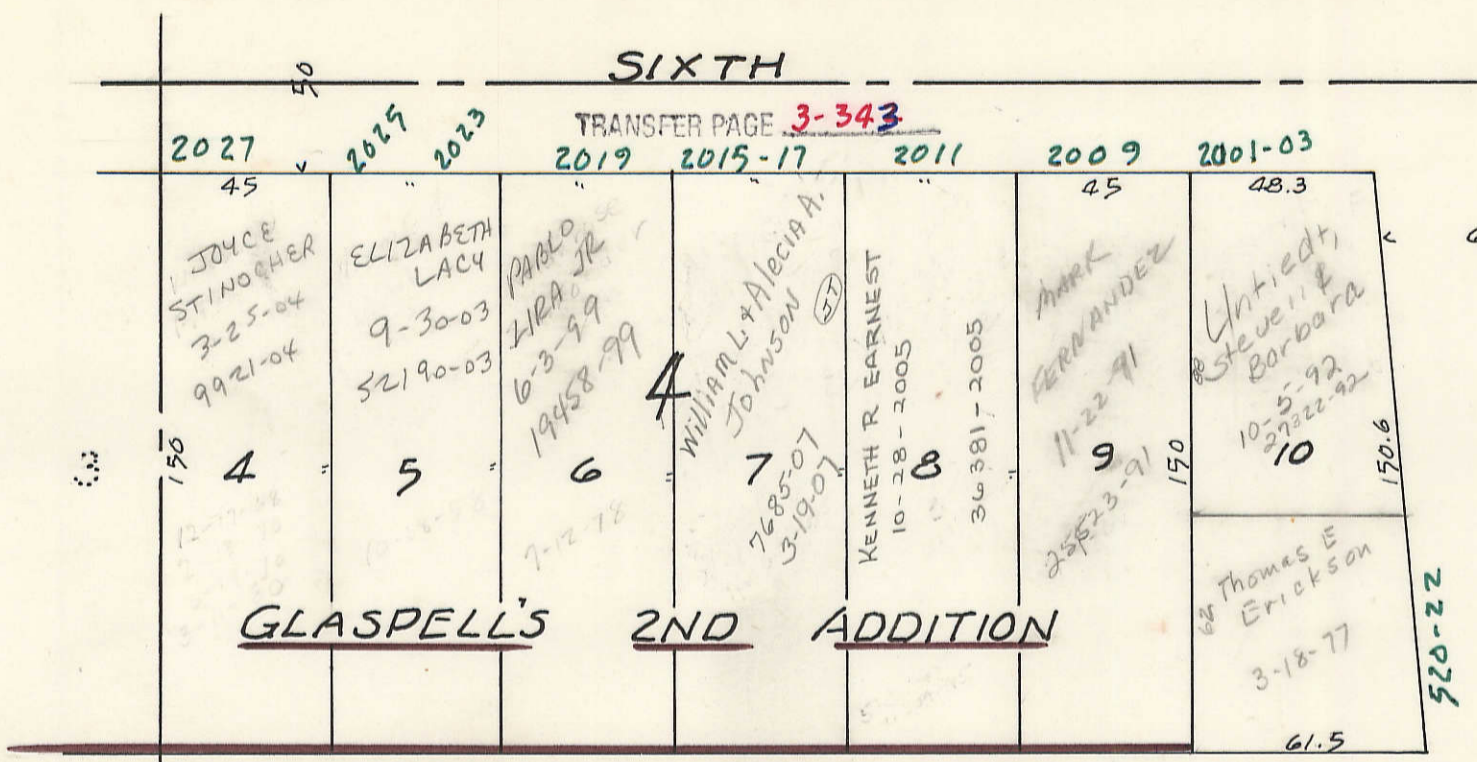 SIXTH
50
TRANSFER PAGE 3-343
2027
2025
2023
2019
2015-17
2011
2009
2001-03
45
"
"
"
"
45
48.3
JOYCE
STINOCHER
3-25-04
9921-04
ELIZABETH
LACY
9-30-03
52190-03
PABLO
LIRA JR
6-3-99
19458-99
4
William L. & Alecia A.
Johnson
JT
7685-07
3-19-07
KENNETH R EARNEST
10-28-2005
36381-2005
MARK
FERNANDEZ
11-22-91
25523-91
Untiedt,
Steven &
Barbara
10-5-92
27322-92
88
150
4
"
5
"
6
"
7
"
8
"
9
150
10
150.6
7-12-78
Thomas E
Erickson
3-18-77
62
GLASPELL'S 2ND ADDITION
520-22
61.5